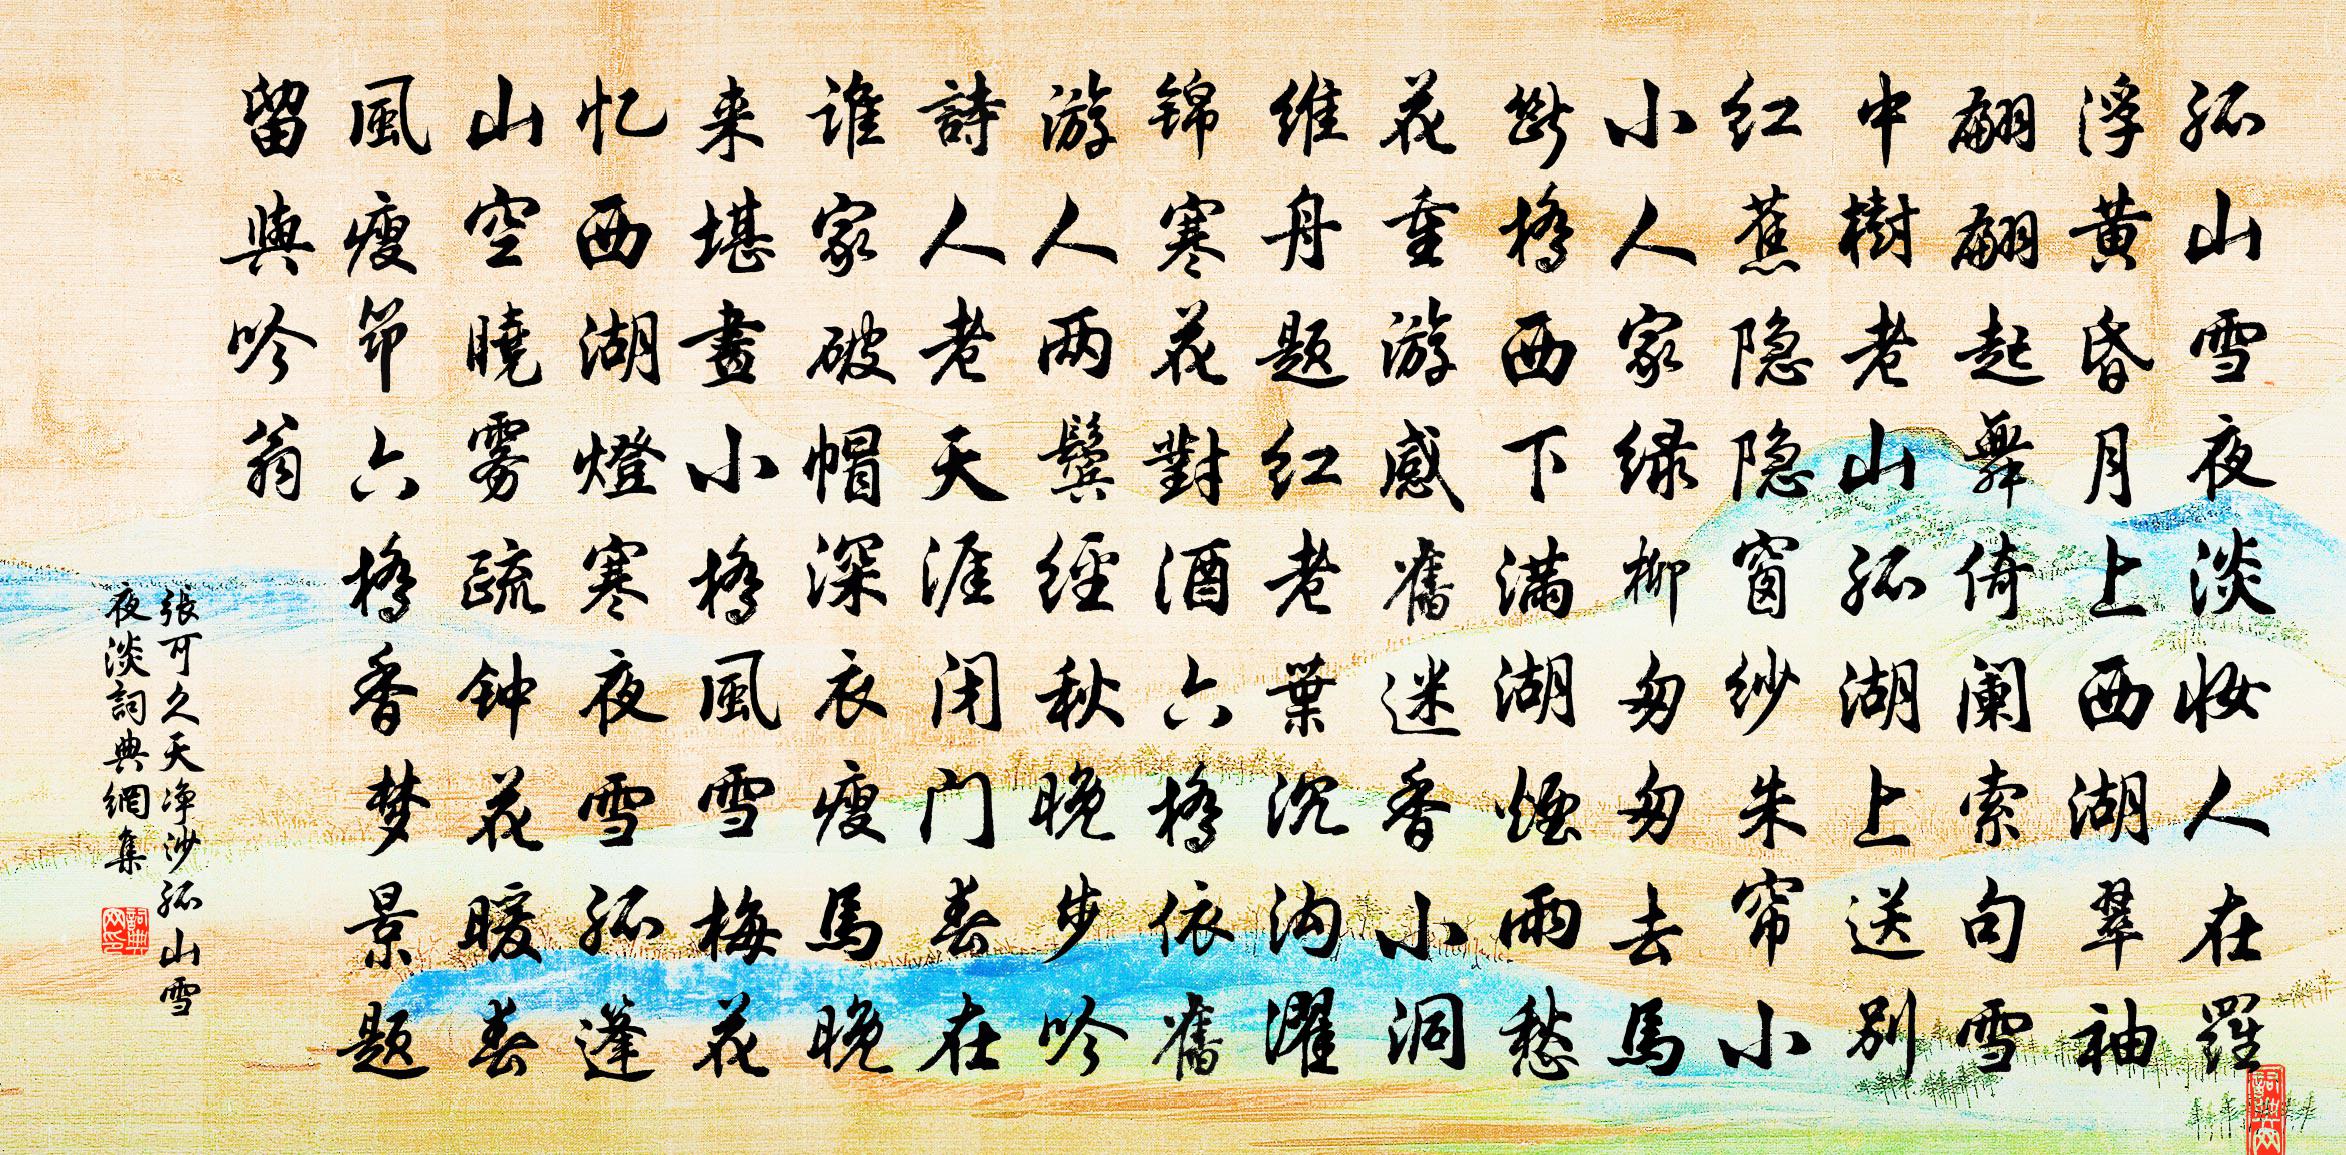 孤山雪夜淡妆人在罗
浮黄昏月上西湖翠袖
翩翩起舞倚阑索句雪
中樹老山孤湖上送别
红蕉隐隐窗纱朱帘小
小人家绿柳匆匆去馬
断橋西下满湖煙雨愁
花重游感舊迷香小洞
维舟题红老葉沉沟濯
锦寒花對酒六橋依舊
游人两鬓經秋晚步吟
詩人老天涯闭门春在
谁家破帽深衣瘦馬晚
来堪畫小橋風雪梅花
忆西湖燈寒夜雪孤篷
山空曉雾疏钟花暖春
風瘦筇六橋香梦景题
留與吟翁
張可久天净沙孤山雪
夜淡詞典網集
詞典网印